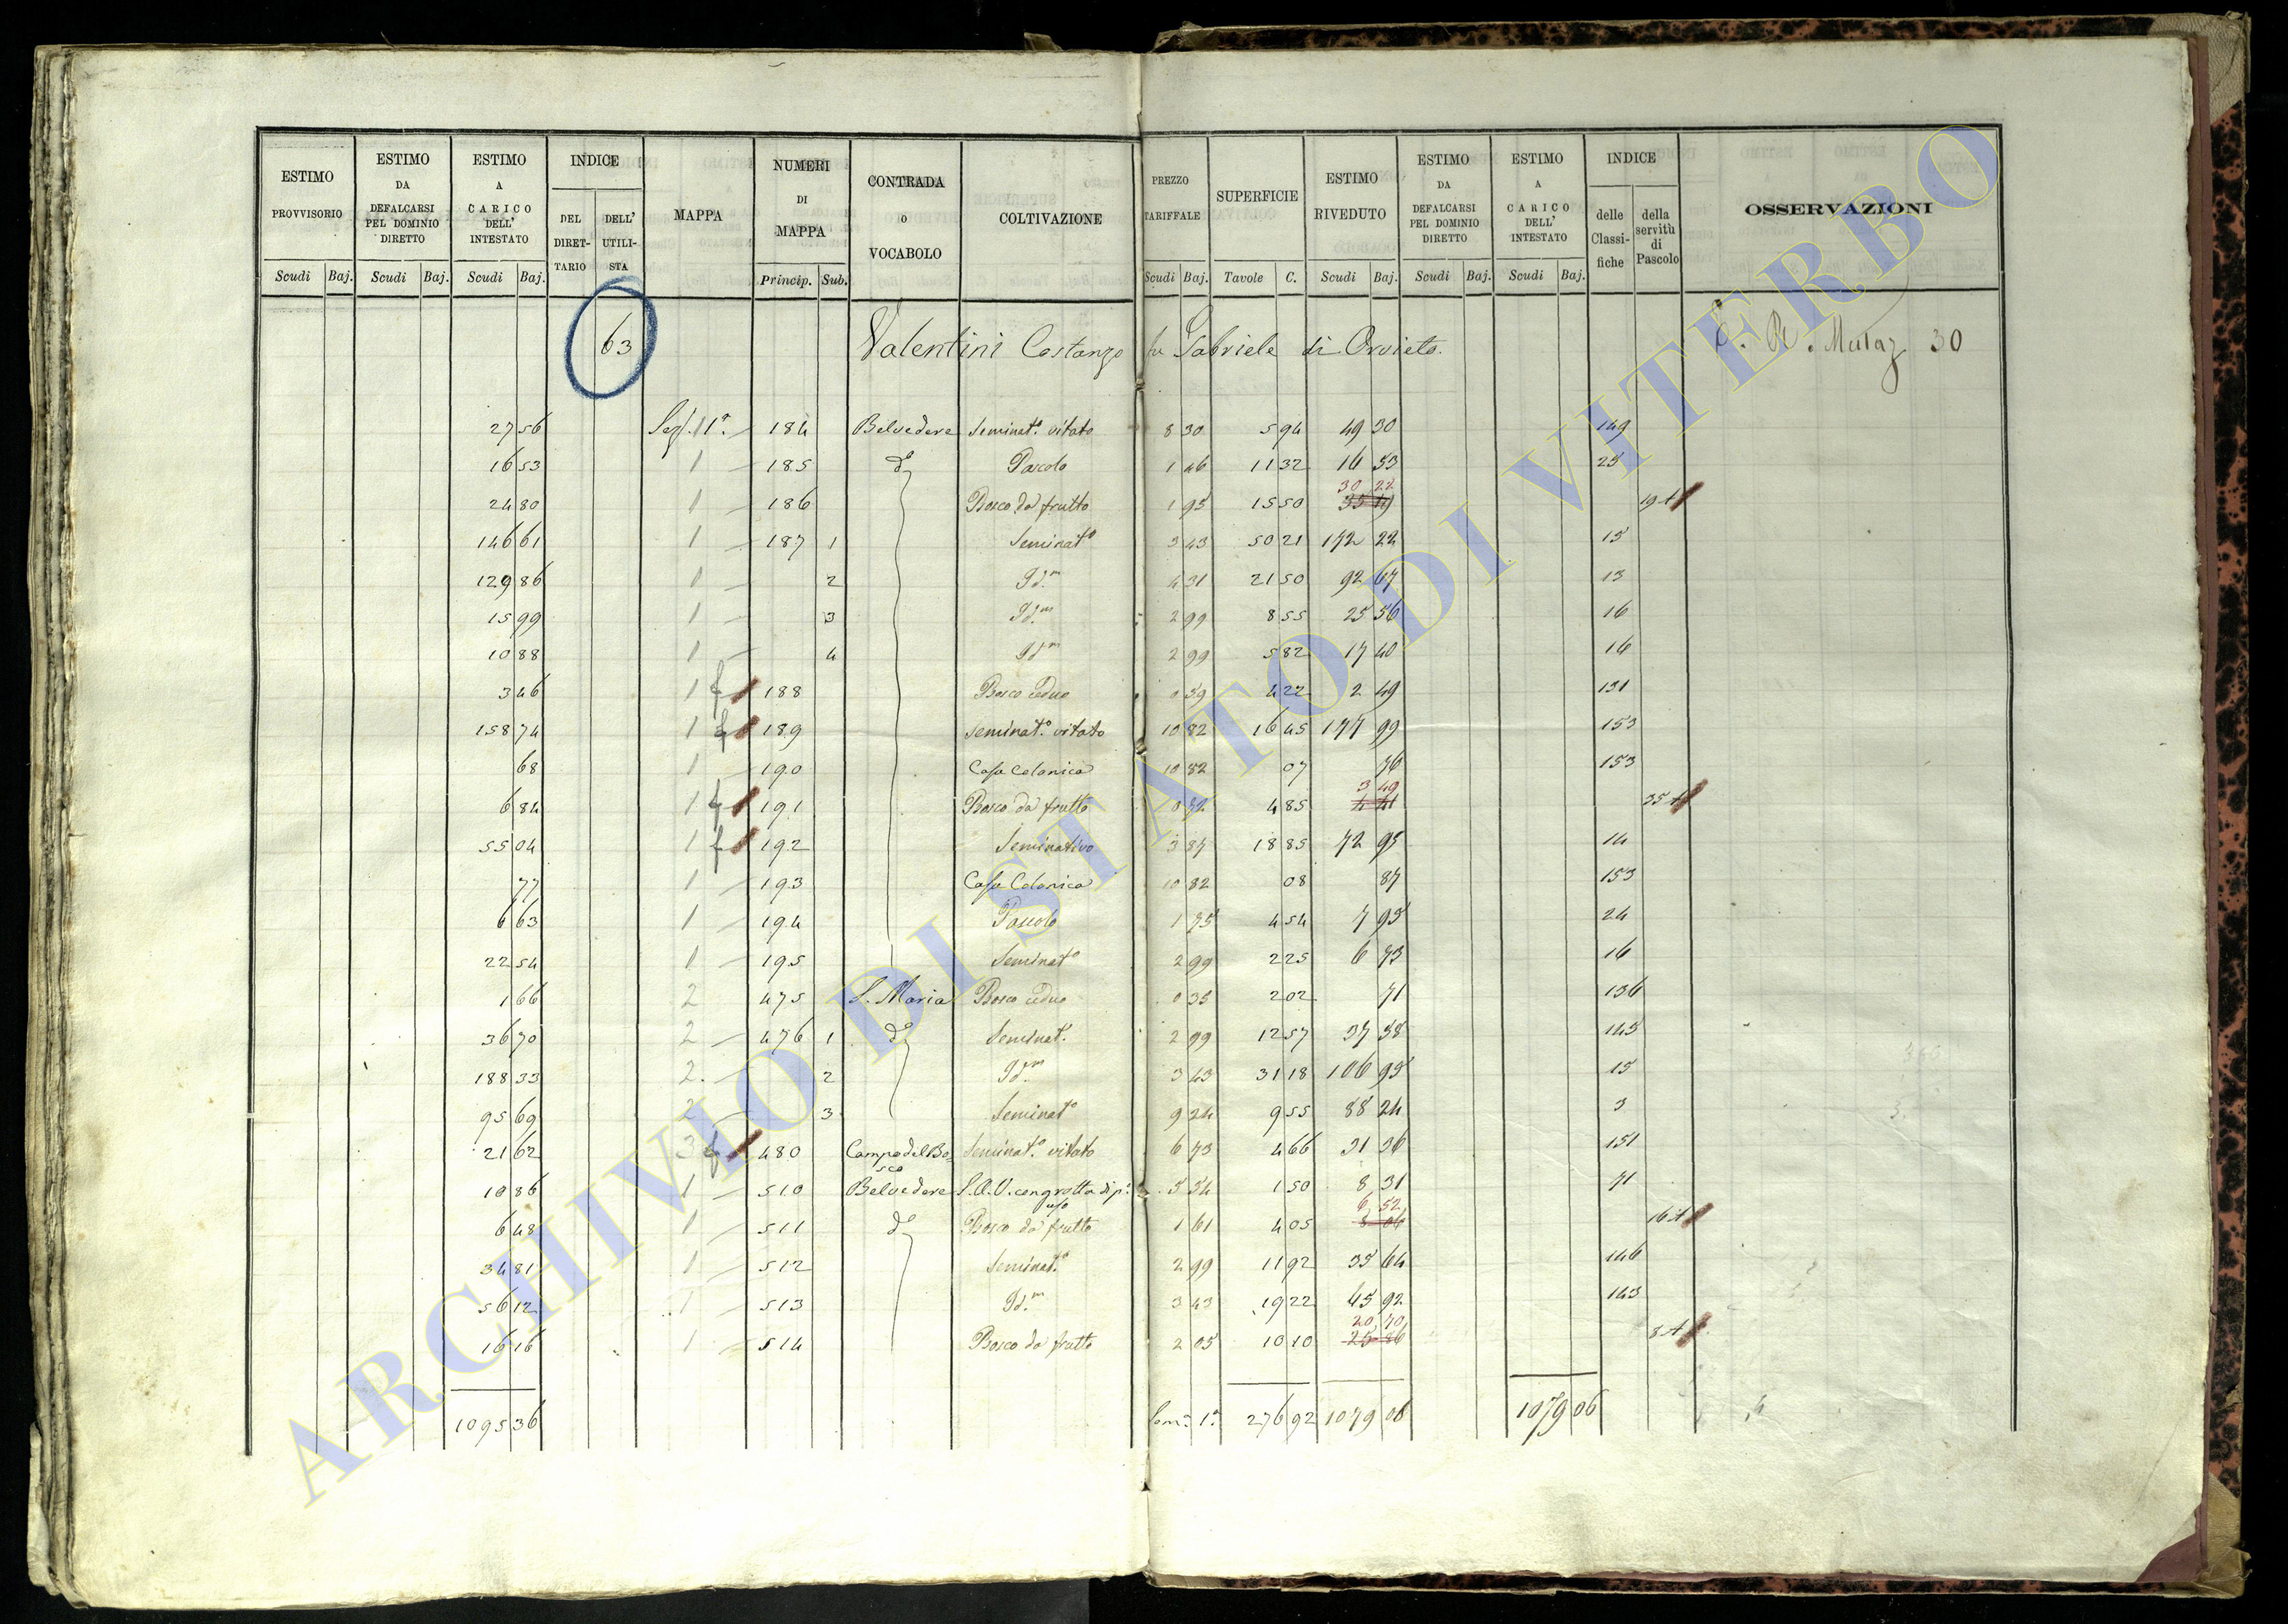 ESTIMO PROVVISORIO Scudi Baj. | ESTIMO DA DEFALCARSI PEL DOMINIO DIRETTO Scudi Baj. | ESTIMO A CARICO DELL' INTESTATO Scudi Baj. | INDICE DEL DIRETTARIO DELL' UTILISTA | MAPPA | NUMERI DI MAPPA Princip. Sub. | CONTRADA o VOCABOLO | COLTIVAZIONE | PREZZO TARIFFALE Scudi Baj. | SUPERFICIE Tavole C. | ESTIMO RIVEDUTO Scudi Baj. | ESTIMO DA DEFALCARSI PEL DOMINIO DIRETTO Scudi Baj. | ESTIMO A CARICO DELL' INTESTATO Scudi Baj. | INDICE delle Classifiche della servitù di Pascolo | OSSERVAZIONI
63 Valentini Costanzo fu Gabriele di Orvieto. 30
27 56 Sez. 1ª 184 Belvedere Seminat.º vitato 8 30 5 94 49 30 149
16 53 1 185 dº Pascolo 1 46 11 32 16 53 25
24 80 1 186 Bosco da frutto 1 95 15 50 30 22 19 A
146 61 1 187 1 Seminatº 3 43 50 21 172 22 15
129 86 1 2 Id.m 4 31 21 50 92 67 13
15 99 1 3 Id.m 2 99 8 55 25 56 16
10 88 1 4 Id.m 2 99 5 82 17 40 16
3 46 1 f 188 Bosco ceduo 0 59 4 22 2 49 131
158 74 1 f 189 Seminat.º vitato 10 82 16 45 177 99 153
68 1 190 Casa colonica 10 82 07 76 153
6 84 1 f 191 Bosco da frutto 0 72 4 85 3 49 4 41 35 A
55 04 1 f 192 Seminativo 3 87 18 85 72 95 14
77 1 193 Casa Colonica 10 82 08 87 153
6 63 1 194 Pascolo 1 75 4 54 7 95 24
22 54 1 195 Seminatº 2 99 2 25 6 73 16
1 66 2 475 S. Maria Bosco ceduo 0 35 2 02 71 136
36 70 2 476 1 dº Seminat. 2 99 12 57 37 58 145
188 33 2 2 Id.m 3 43 31 18 106 95 15
95 69 2 3 Seminatº 9 24 9 55 88 24 3
21 62 3 f 480 Campo del Bosco Seminat.º vitato 6 73 4 66 31 36 151
10 86 1 510 Belvedere S.A.V. con grotta di p. uso 5 54 1 50 8 31 71
6 48 1 511 dº Bosco da frutto 1 61 4 05 6 52 16 A
34 81 1 512 Seminat.º 2 99 11 92 35 64 146
56 12 1 513 Id.m 3 43 19 22 65 92 143
16 16 1 514 Bosco da frutto 2 05 10 10 20 70 25 86 8 A
1095 36 Som.ª 1ª 276 92 1079 06 1079 06
ARCHIVIO DI STATO DI VITERBO